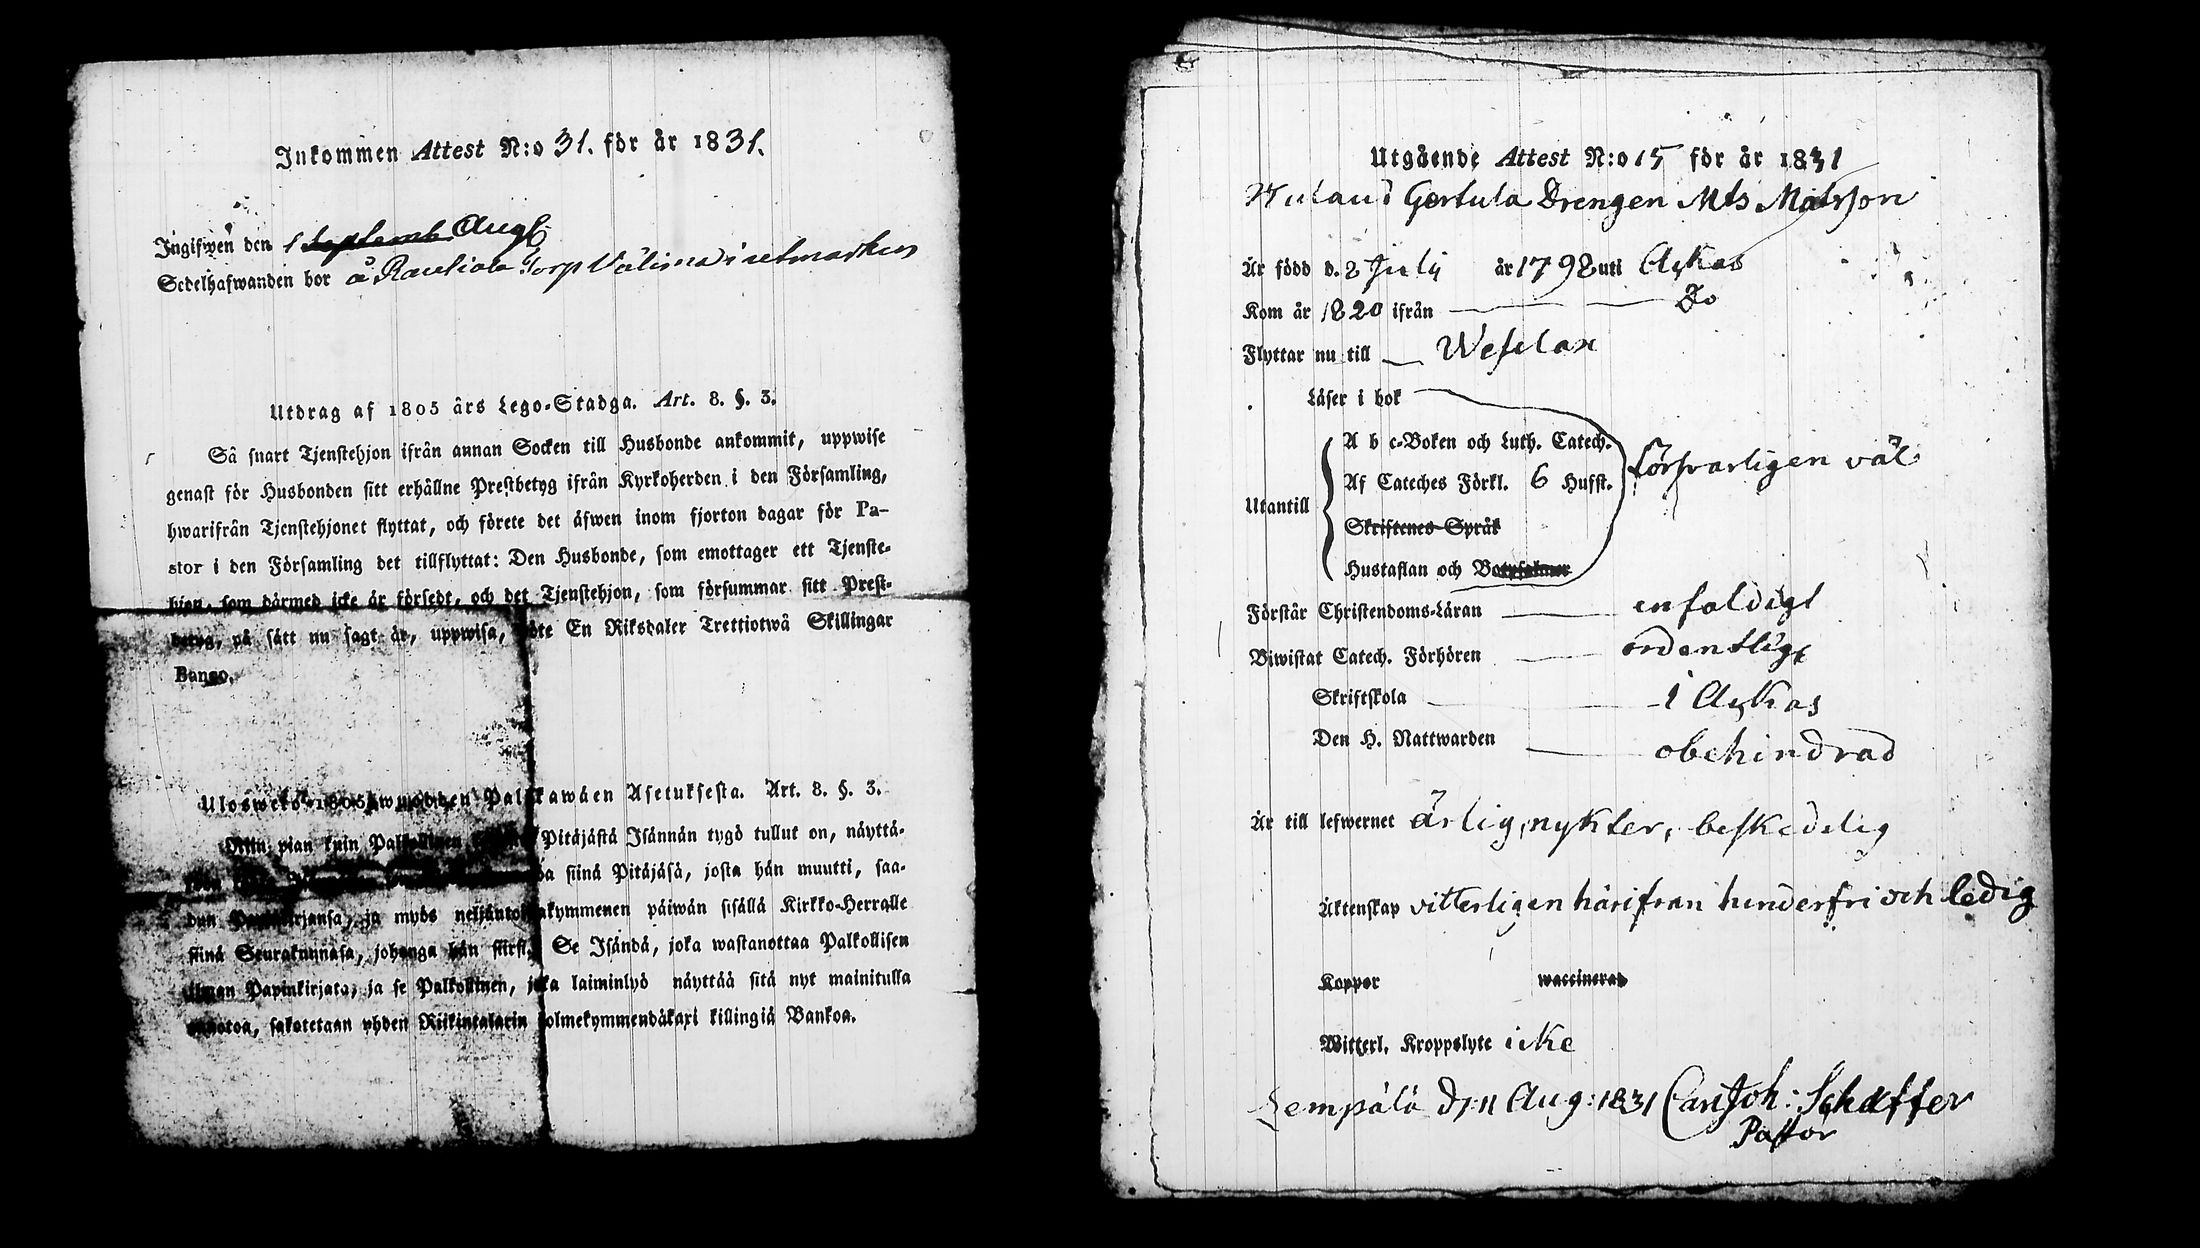 Inkommen Attest N:o 31. för år 1831.
Ingifwen den 1 Septemb. Aug
Sedelhafwanden bor å Torp
Utdrag af 1805 års Lego-Stadga. Art. 8. §. 3.
Så snart Tjenstehjon ifrån annan Socken till Husbonde ankommit, uppwise
genast för Husbonden sitt erhållne Prestbetyg ifrån Kyrkoherden i den Församling,
hwarifrån Tjenstehjonet flyttat, och förete det äfwen inom fjorton dagar för Pa-
stor i den Församling det tillflyttat: Den Husbonde, som emottager ett Tjenste-
hjon, som därmed icke är försedt, och det Tjenstehjon, som försummar sitt Prest-
betyg, på sätt nu sagt är, uppwisa, böte En Riksdaler Trettiotwå Skillingar
Banco.
Ulosweto 1805 wuoden Palkkawäen Asetuksesta. Art. 8. §. 3.
Niin pian kuin Palkollinen Pitäjästä Isännän tygö tullut on, näyttä-
siinä Pitäjäsä, josta hän muutti, saa-
dun Papinkirjansa, ja myös neljäntoistakymmenen päiwän sisällä Kirkko-Herralle
siinä Seurakunnasa, johonga hän siirsi. Se Isändä, joka wastanottaa Palkollisen
ilman Papinkirjata, ja se Palkollinen, joka laiminlyö näyttää sitä nyt mainitulla
muotoa, sakotetaan yhden Riikintalarin kolmekymmendäkaxi killingiä Bankoa.
Utgående Attest N:o 15 för år 1831
Gertula Drengen Mts Matsson
Är född d. 2 July år 1798 uti Ackas
Kom år 1820 ifrån Do
Flyttar nu till Wesilax
Läser i bok
A b c-Boken och Luth. Catech.
Af Cateches Förkl. 6 Hufst. försvarligen väl
Utantill
Skriftenes Språk
Hustaflan och Botpsalmer
Förstår Christendoms-Läran enfaldigt
Biwistat Catech. Förhören ordentligt
Skriftskola i Ackas
Den H. Nattwarden obehindrad
Är till lefwernet ärlig, nykter, beskedelig
Äktenskap vitterligen härifrån hinderfri och ledig
Koppor waccinerad
Witterl. Kroppslyte icke
Lempälä d. 11 Aug: 1831 Carl Joh: Schæffer
Pastor